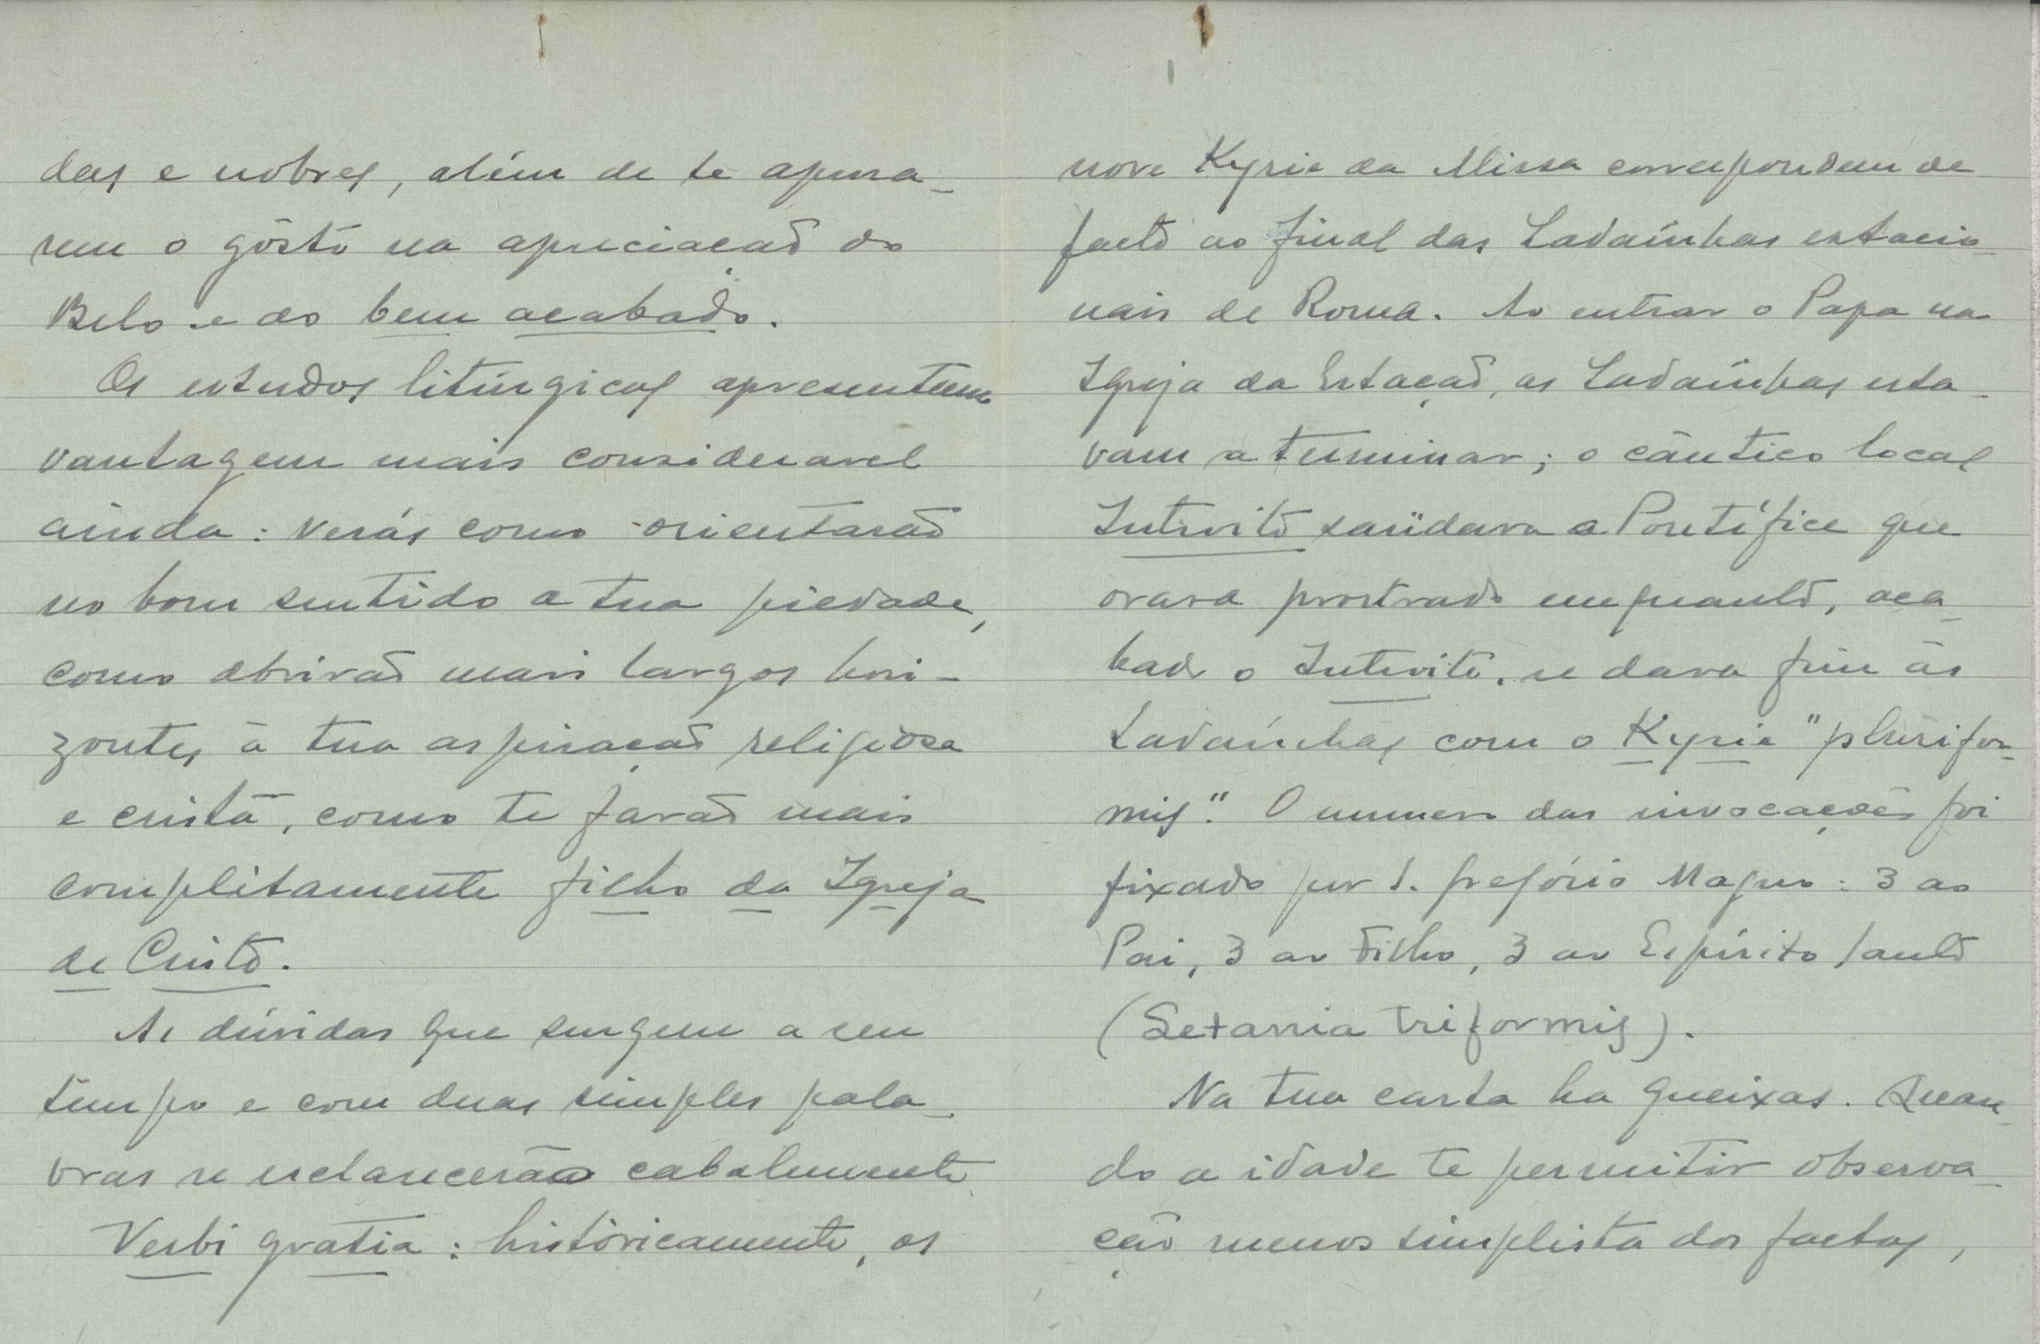 das e nobres, além de te apura-
rem o gôsto na apreciação do
Belo e do bem acabado.
Os estudos litúrgicos apresentam
vantagem mais consideravel
ainda: verás como orientarão
no bom sentido a tua piedade,
como abrirão mais largos hori-
zontes à tua aspiração religiosa
e cristã, como te farão mais
complètamente filho da Igreja
de Cristo.
As dúvidas que surgem a seu
tempo e com duas simples pala-
vras se esclarecerão cabalmente
Verbi gratia: històricamente, os
nove Kyrie da Missa correspondem de
facto ao final das Ladaínhas estacio-
nais de Roma. Ao entrar o Papa na
Igreja da Estação, as Ladaínhas esta-
vam a terminar; o cântico local
Introito saüdava o Pontífice que
orava prostrado emquanto, aca-
bado o Introito, se dava fim às
Ladaínhas com o Kyrie "plurifor-
mis". O numero das invocações foi
fixado por S. Gregório Magno: 3 ao
Pai, 3 ao Filho, 3 ao Espírito Santo
(Letania triformis).
Na tua carta ha queixas. Quan-
do a idade te permitir observa-
ção menos simplista dos factos,